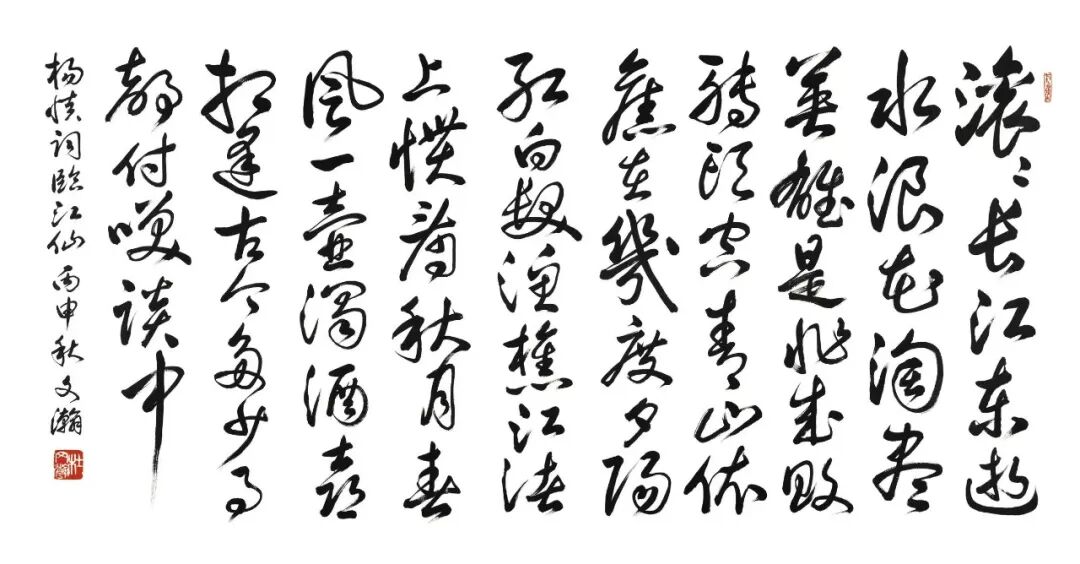 滚滚长江东逝
水浪花淘尽
英雄是非成败
转头空青山依
舊在幾度夕阳
红白发渔樵江渚
上惯看秋月春
風一壶濁酒喜
相逢古今多少事
都付笑谈中
杨慎词臨江仙 丙申秋文瀚